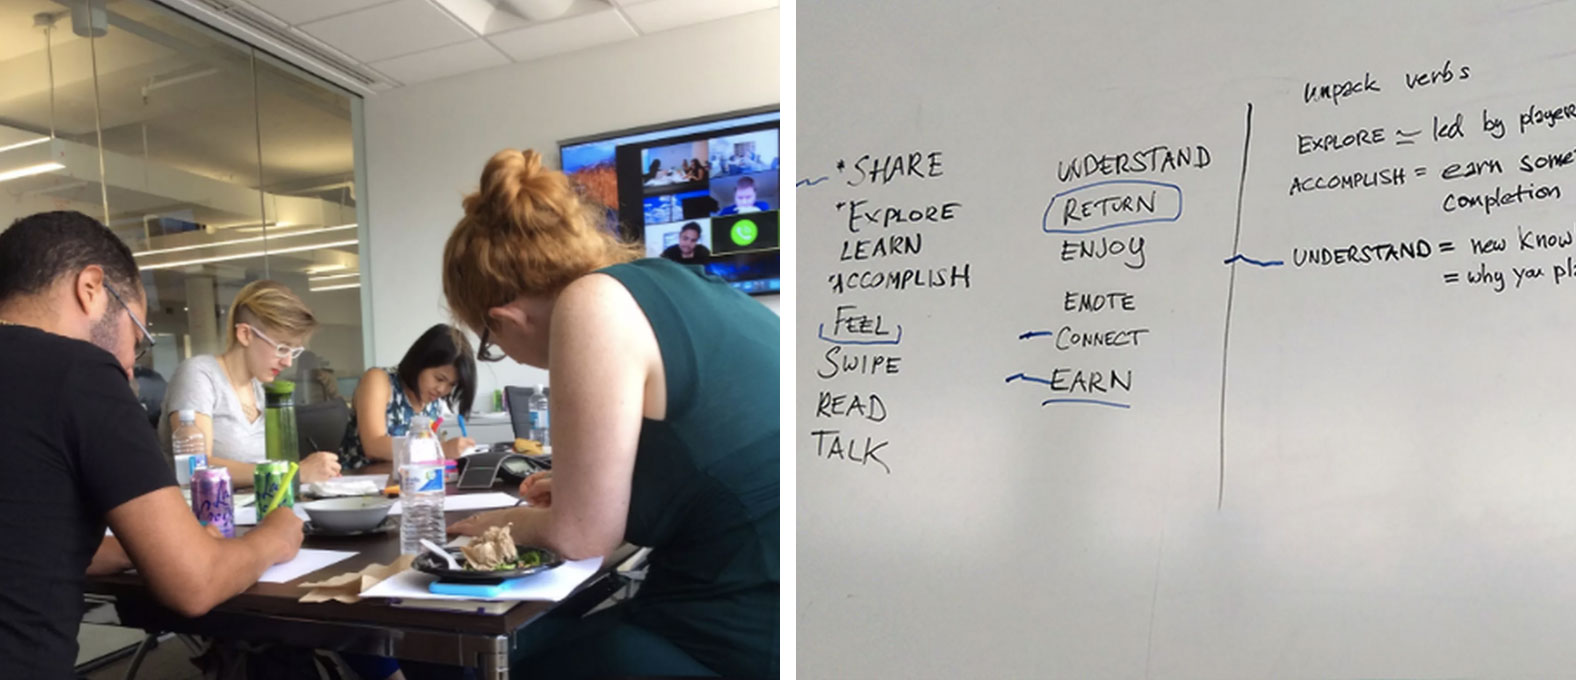 *SHARE
*EXPLORE
LEARN
*ACCOMPLISH
FEEL
SWIPE
READ
TALK
UNDERSTAND
RETURN
ENJOY
EMOTE
CONNECT
EARN
unpack verbs
EXPLORE ≃ led by player
ACCOMPLISH = earn some
completion
UNDERSTAND = new know
= why you pla